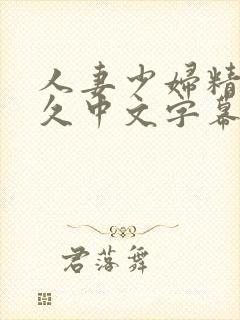 人妻少婦精
久中文字幕
君落舞